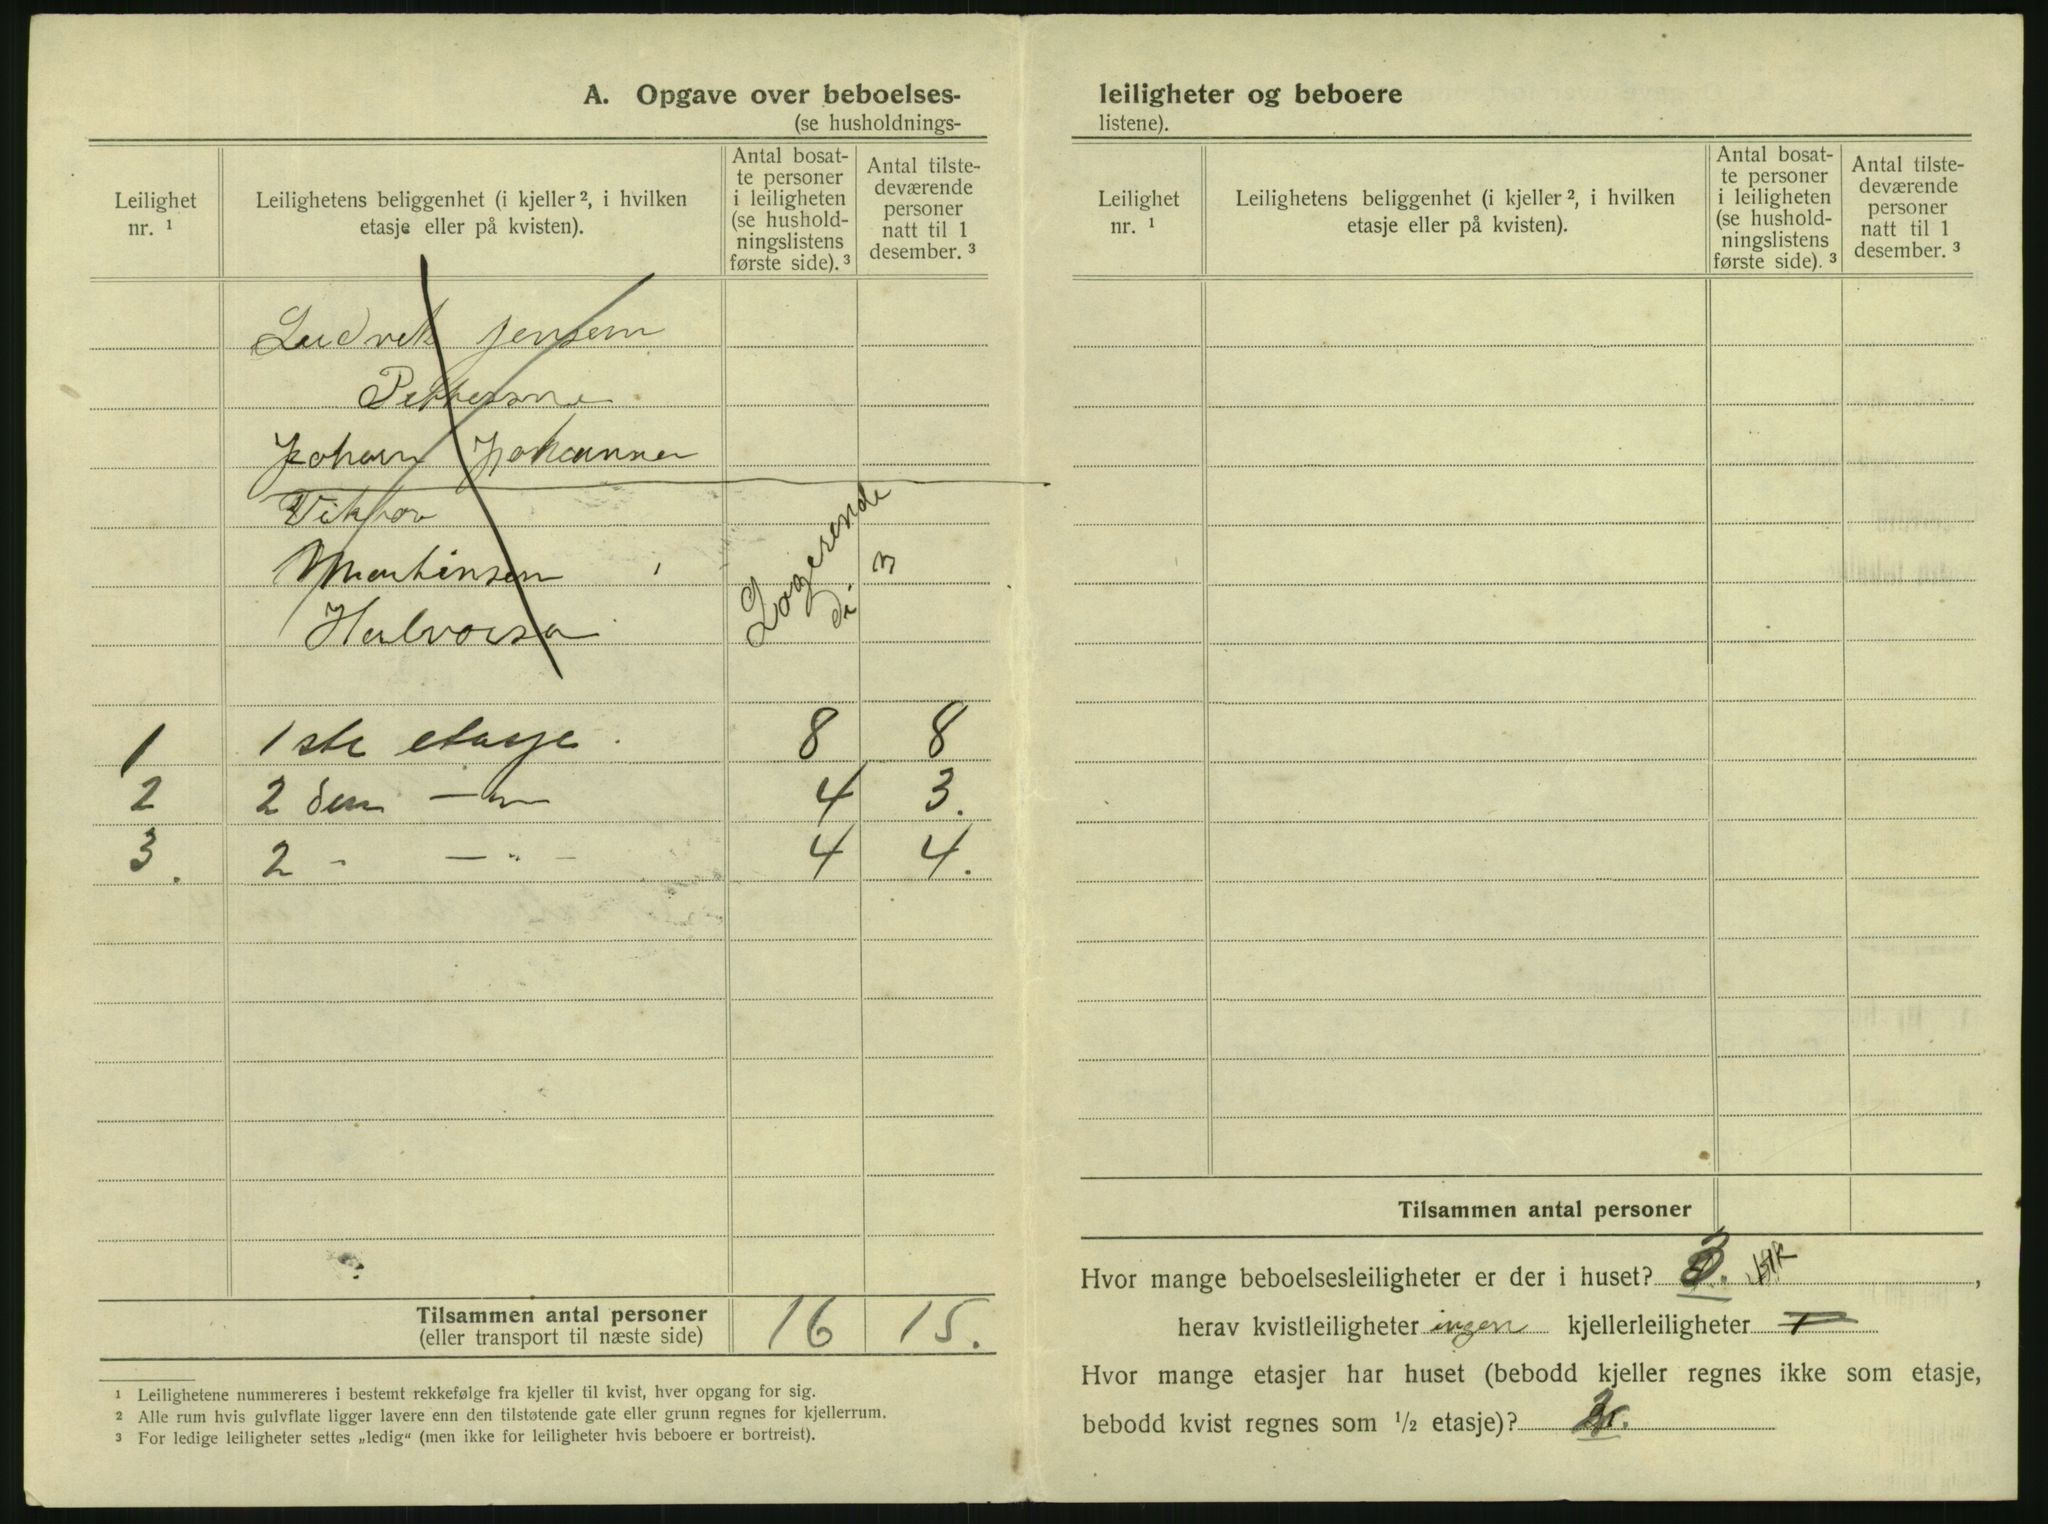 A. Opgave over beboelses-
(se husholdnings-
Leilighet
nr. ¹
Leilighetens beliggenhet (i kjeller ², i hvilken
etasje eller på kvisten).
Antal bosat-
te personer
i leiligheten
(se hushold-
ningslistens
første side). ³
Antal tilste-
deværende
personer
natt til 1
desember. ³
Ludvik Jensen
Johan Johannsen
Viktor
Martinsen
Halvorsen
Logerende
1 1ste etasje 8 8
2 2den — " — 4 3.
3. 2 - — " — 4 4.
Tilsammen antal personer
(eller transport til næste side)
16 15.
¹ Leilighetene nummereres i bestemt rekkefølge fra kjeller til kvist, hver opgang for sig.
² Alle rum hvis gulvflate ligger lavere enn den tilstøtende gate eller grunn regnes for kjellerrum.
³ For ledige leiligheter settes „ledig“ (men ikke for leiligheter hvis beboere er bortreist).
leiligheter og beboere
listene).
Leilighet
nr. ¹
Leilighetens beliggenhet (i kjeller ², i hvilken
etasje eller på kvisten).
Antal bosat-
te personer
i leiligheten
(se hushold-
ningslistens
første side). ³
Antal tilste-
deværende
personer
natt til 1
desember. ³
Tilsammen antal personer
Hvor mange beboelsesleiligheter er der i huset? 3. ,
herav kvistleiligheter ingen kjellerleiligheter
Hvor mange etasjer har huset (bebodd kjeller regnes ikke som etasje,
bebodd kvist regnes som ½ etasje)? 2.